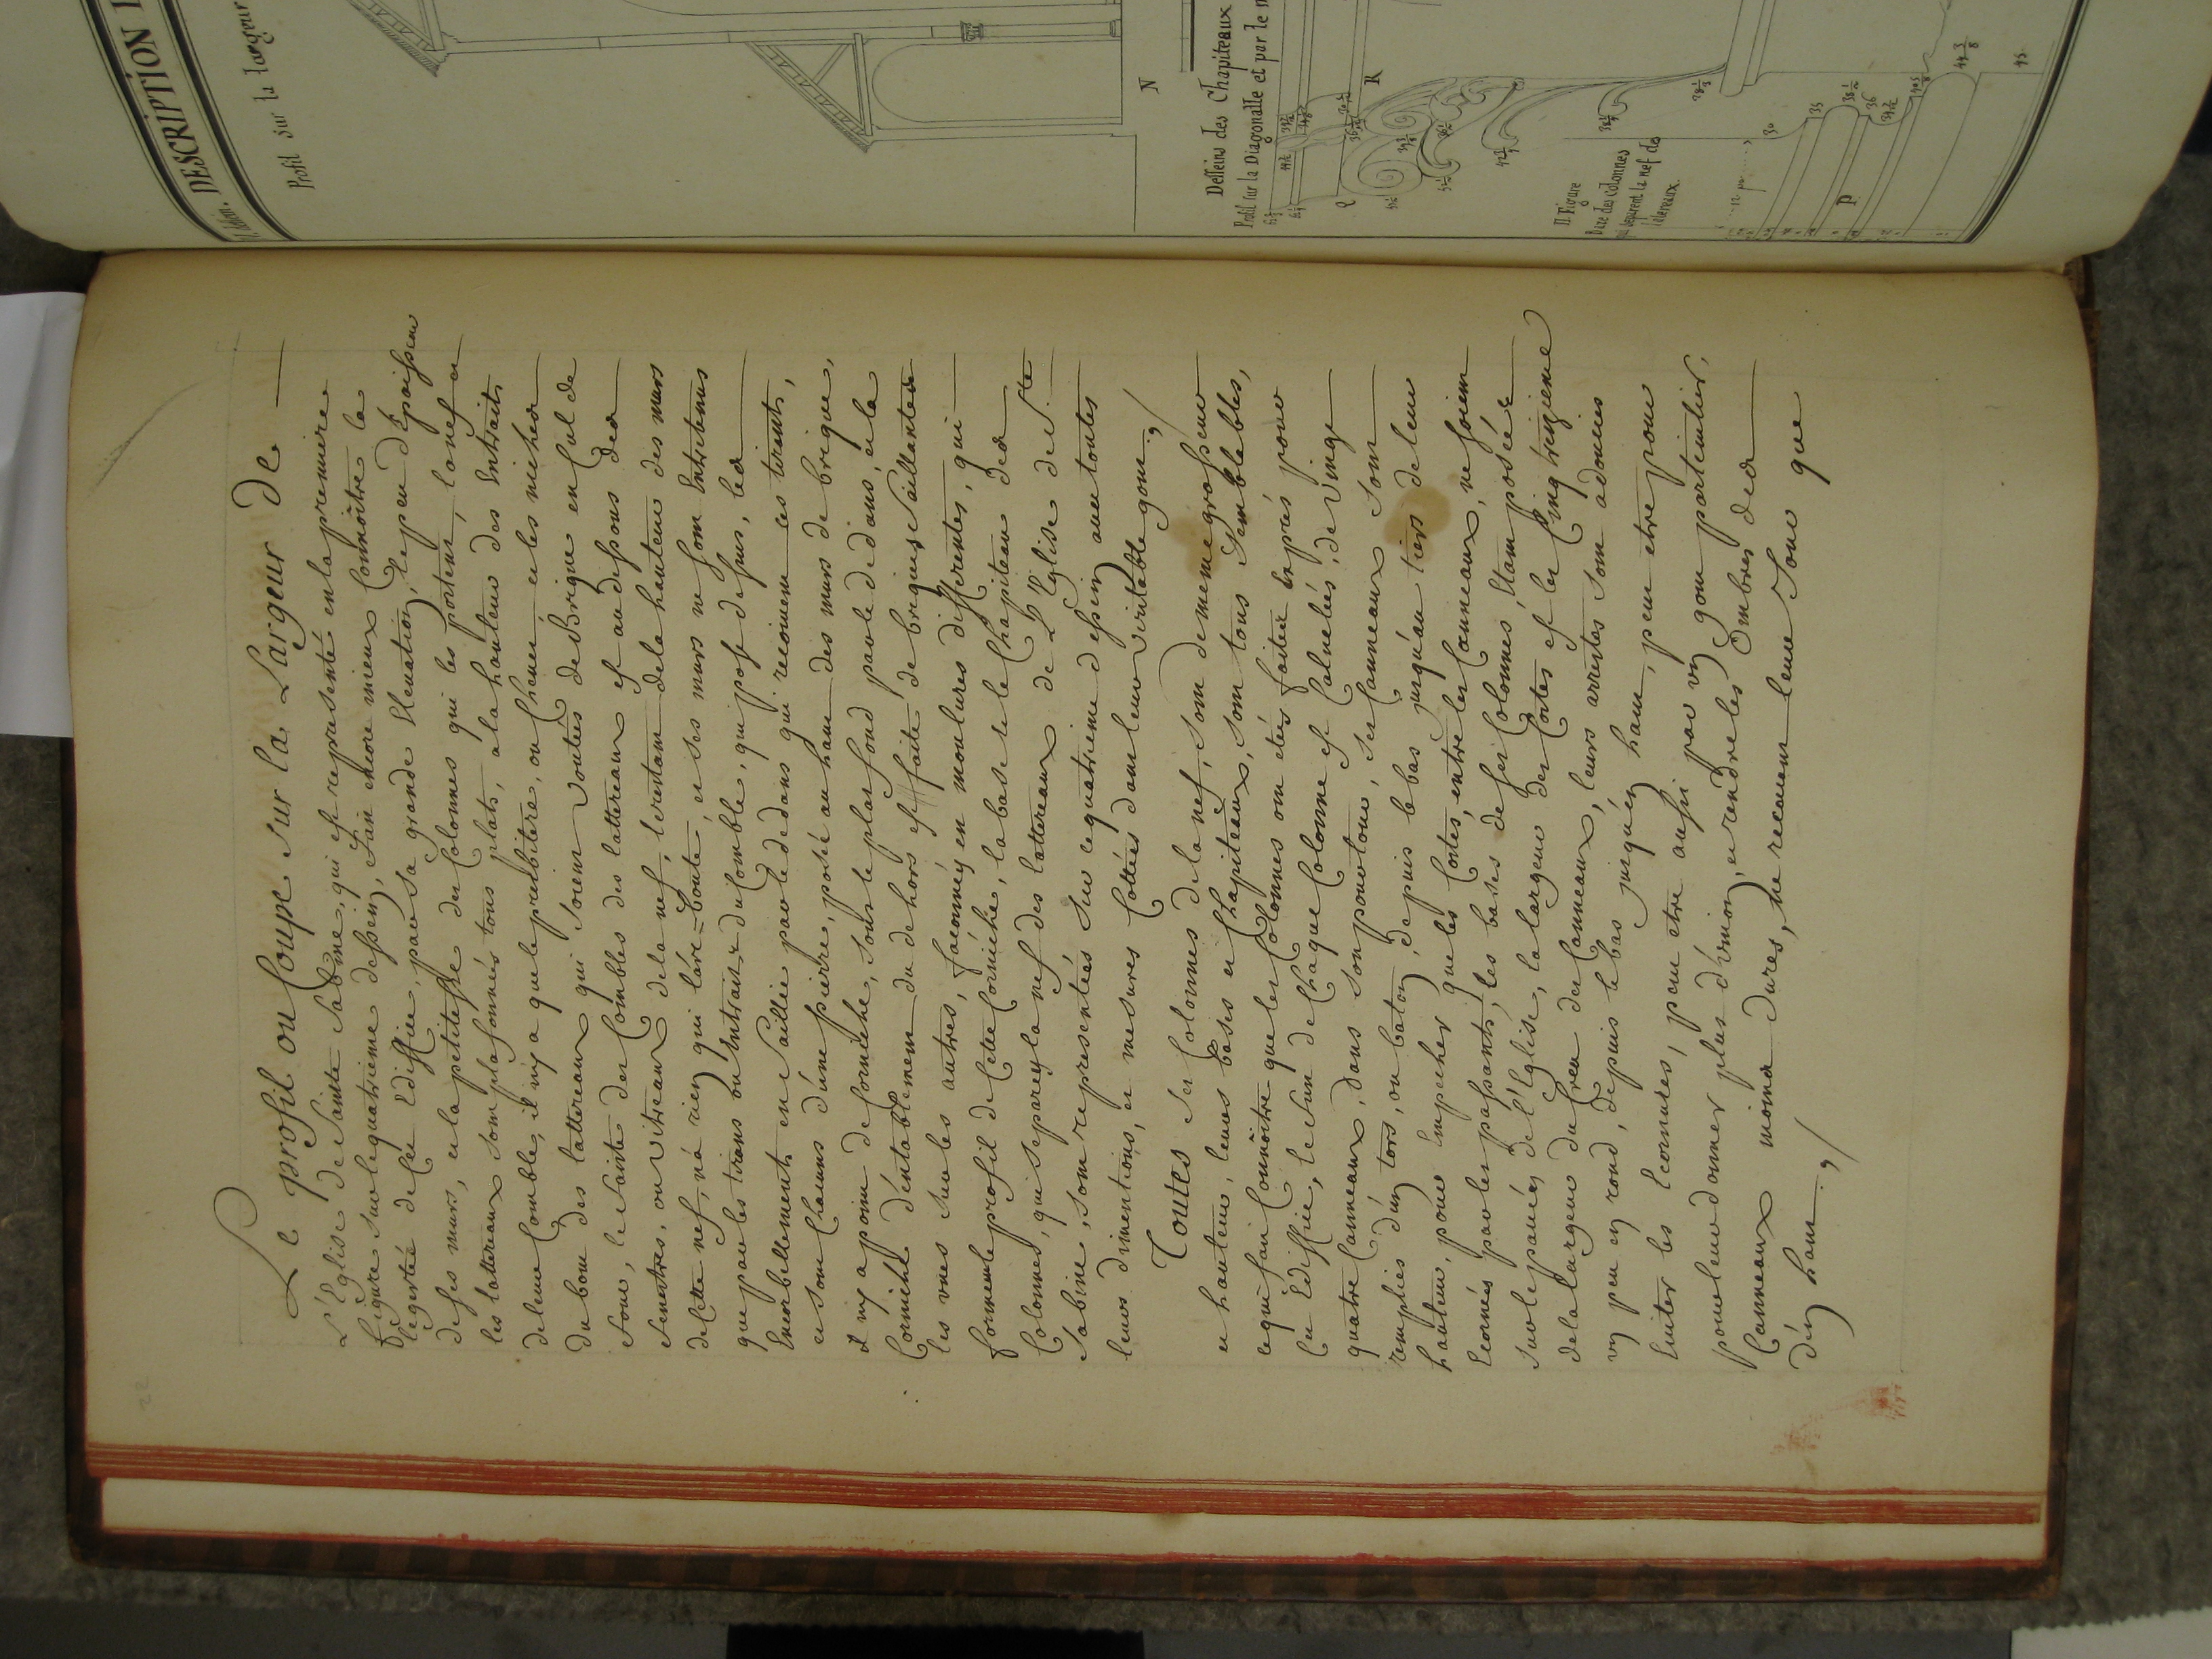 Le profil ou Coupe sur la Largeur de
L'Eglise de Sainte Sabine, qui est representé en la premiere
figure sur le quatrieme dessein, fait encore mieux Connoître la
legerteé de Cet Ediffice, par sa grande Elevation, le peu d'Epaisseur
de ses murs, et la petitesse des Colonnes qui les portent, la nef et
les lattereaux sont plafonneés tous plats, a la hauteur des Entraits
de leur Comble, il n'y a que le presbitere, ou Chevet, et les niches
du bout des lattereaux qui soient voutées de Brique en Cul de
four, le faite des Combles des lattereaux est au dessous des
fenestres, ou vitreaux de la nef, le restant de la hauteur des murs
de Cette nef, n'a rien qui l'arc=boute, et ses murs ne sont Entretenus
que par les tirans ou Entraits du Comble, qui pose dessus, les
Encorbellements en Saillie par le dedans qui recoivent ces tirants,
et sont Chacuns d'une pierre, poseé au haut des murs de brique,
il n'y a point de Corniche, sous le plat fond par le dedans, et la
Corniche d'entablement du dehors est faite de briques Saillantes
les vnes sur les autres, façonnéés en moulures differentes, qui
forment le profil de Cette Corniche, la base et le Chapiteau des
Colonnes, qui separent la nef des lattereaux de L'Eglise de S.te
Sabine, sont representeés sur ce quatrieme dessein avec toutes
leurs dimentions, et mesures Cottées dans leur veritable gout.,/
Toutes ses Colonnes de la nef, sont de meme grosseur
et hauteur, leurs bases et Chapiteaux, sont tous Semblables,
ce qui fait Connoître que les Colonnes ont etés faites Exprés pour
Cet Ediffice, le fut de Chaque Colonne est Calneleés, de vingt
quatre Canneaux, dans son pourtour, ses Canneaux sont
remplies d'un tors, ou baton, depuis le bas jusqu'au tiers de leur
hauteur, pour Empecher que les Costes, entre les Canneaux, ne soient
Ecornées par les passants, les bases de ses Colonnes, Etant poséés
sur le pavéz de l'Eglise, la largeur des Costes est les Cinq treizieme
de la largeur du Creu des Canneaux, leurs arrestes sont adoucies
vn peu en rond, depuis le bas jusqu'en haut, peut etre pour
Eviter les Ecornures, peut etre aussi par vn gout particulier,
pour leur donner plus d'vnion, et rendre les Ombres des
Canneaux moins dures, ne recevant leur Jour que
d'en haut.,/
DESCRIPTION
Profil sur la largeur
N
Desseins des Chapiteaux
Profil sur la Diagonalle et par le
R
II. Figure
Baze des colonnes
qui separent la nef des
latereaux.
30
35
P
38 1/2
36
44 3/8
45